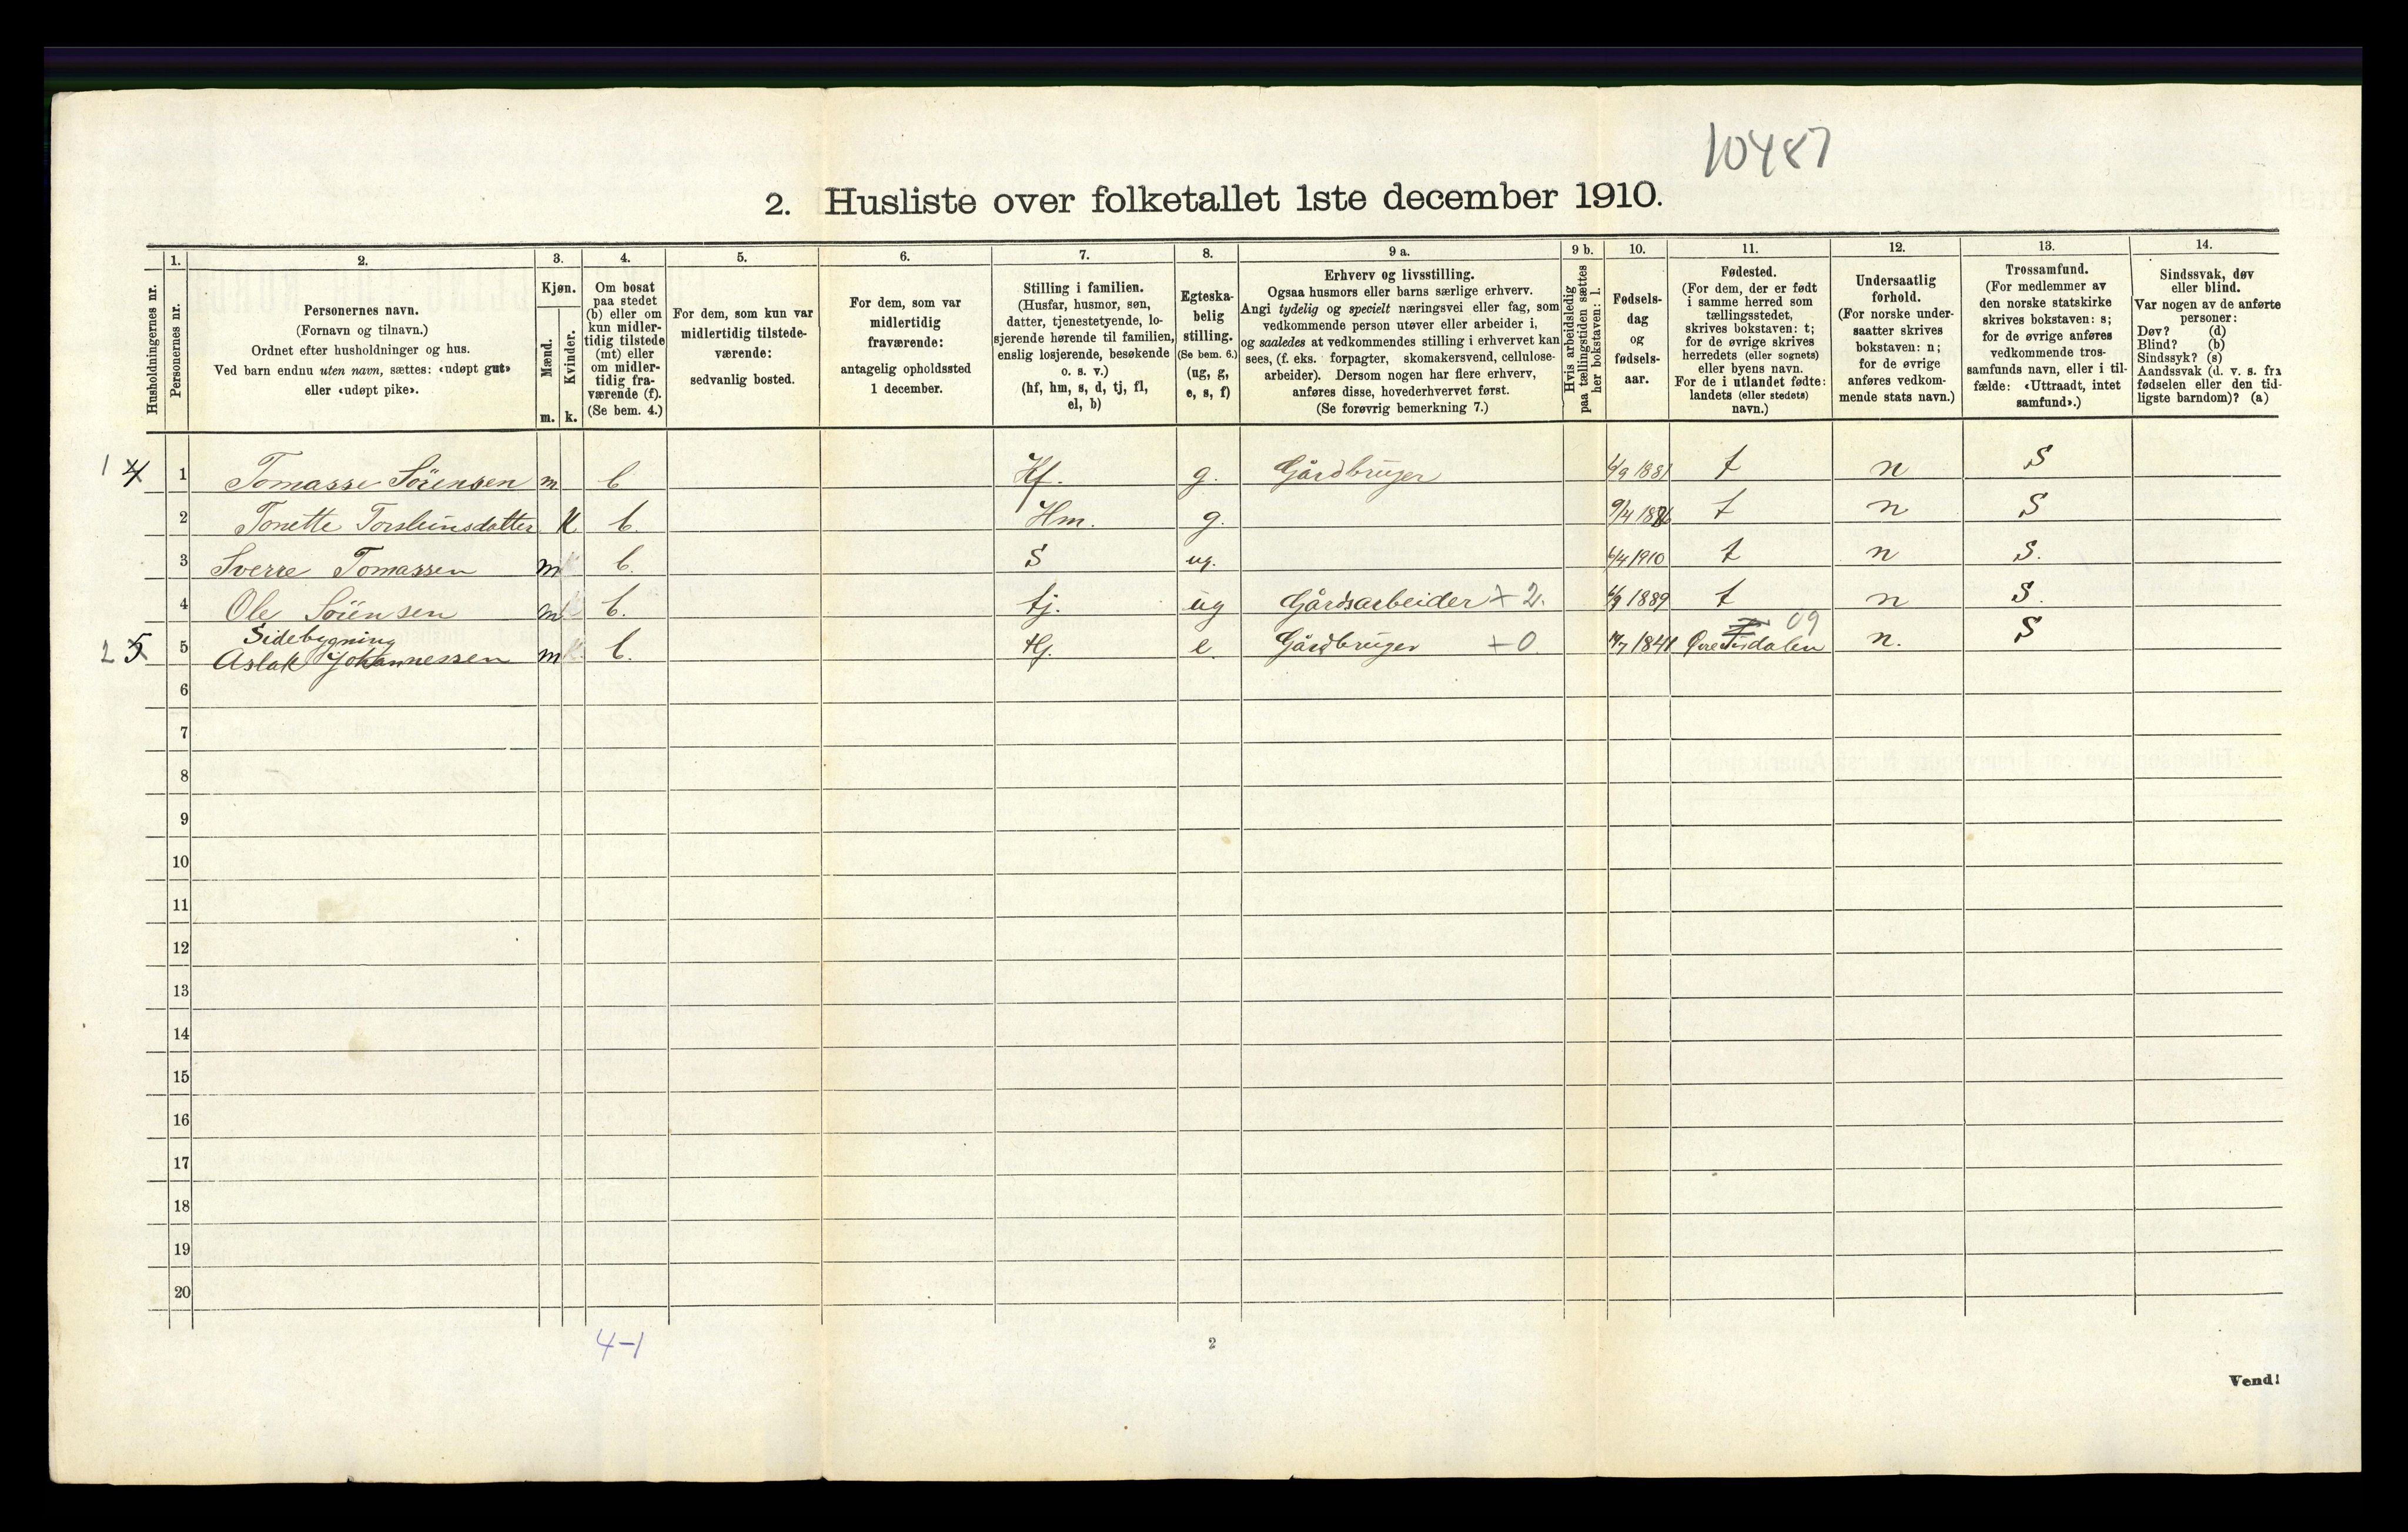 10487
2. Husliste over folketallet 1ste december 1910.
Husholdningernes nr.
1.
Personernes nr.
2.
Personernes navn.
(Fornavn og tilnavn.)
Ordnet efter husholdninger og hus.
Ved barn endnu uten navn, sættes: «udøpt gut»
eller «udøpt pike».
3.
Kjøn.
Mænd.
m.
Kvinder.
k.
4.
Om bosat
paa stedet
(b) eller om
kun midler-
tidig tilstede
(mt) eller
om midler-
tidig fra-
værende (f).
(Se bem. 4.)
5.
For dem, som kun var
midlertidig tilstede-
værende:
sedvanlig bosted.
6.
For dem, som var
midlertidig
fraværende:
antagelig opholdssted
1 december.
7.
Stilling i familien.
(Husfar, husmor, søn,
datter, tjenestetyende, lo-
sjerende hørende til familien,
enslig losjerende, besøkende
o. s. v.)
(hf, hm, s, d, tj, fl,
el, b)
8.
Egteska-
belig
stilling.
(Se bem. 6.)
(ug, g,
e, s, f)
9 a.
Erhverv og livsstilling.
Ogsaa husmors eller barns særlige erhverv.
Angi tydelig og specielt næringsvei eller fag, som
vedkommende person utøver eller arbeider i,
og saaledes at vedkommendes stilling i erhvervet kan
sees, (f. eks. forpagter, skomakersvend, cellulose-
arbeider). Dersom nogen har flere erhverv,
anføres disse, hovederhvervet først.
(Se forøvrig bemerkning 7.)
9 b.
Hvis arbeidsledig
paa tællingstiden sættes
her bokstaven: l.
10.
Fødsels-
dag
og
fødsels-
aar.
11.
Fødested.
(For dem, der er født
i samme herred som
tællingsstedet,
skrives bokstaven: t;
for de øvrige skrives
herredets (eller sognets)
eller byens navn.
For de i utlandet fødte:
landets (eller stedets)
navn.)
12.
Undersaatlig
forhold.
(For norske under-
saatter skrives
bokstaven: n;
for de øvrige
anføres vedkom-
mende stats navn.)
13.
Trossamfund.
(For medlemmer av
den norske statskirke
skrives bokstaven: s;
for de øvrige anføres
vedkommende tros-
samfunds navn, eller i til-
fælde: «Uttraadt, intet
samfund».)
14.
Sindssvak, døv
eller blind.
Var nogen av de anførte
personer:
Døv? (d)
Blind? (b)
Sindssyk? (s)
Aandssvak (d. v. s. fra
fødselen eller den tid-
ligste barndom)? (a)
1 4 1 Tomasse Sörensen m b Hf. g. Gårdbruger 1881 t n S
2 Tonette Torsteinsdatter K b. Hm. g. 9/4 1886 t n S
3 Sverre Tomassen m b. S ug. 6/4 1910 t n S.
4 Ole Sörensen m b. tj. ug Gårdsarbeider + 2. 1889 t n S.
Sidebygning 09
2 5 5 Aslak Johannessen m b. Hf. e. Gårdbruger + 0 1841 Øvre Sirdalen n. S
6
7
8
9
10
11
12
13
14
15
16
17
18
19
20
4-1
2
Vend!